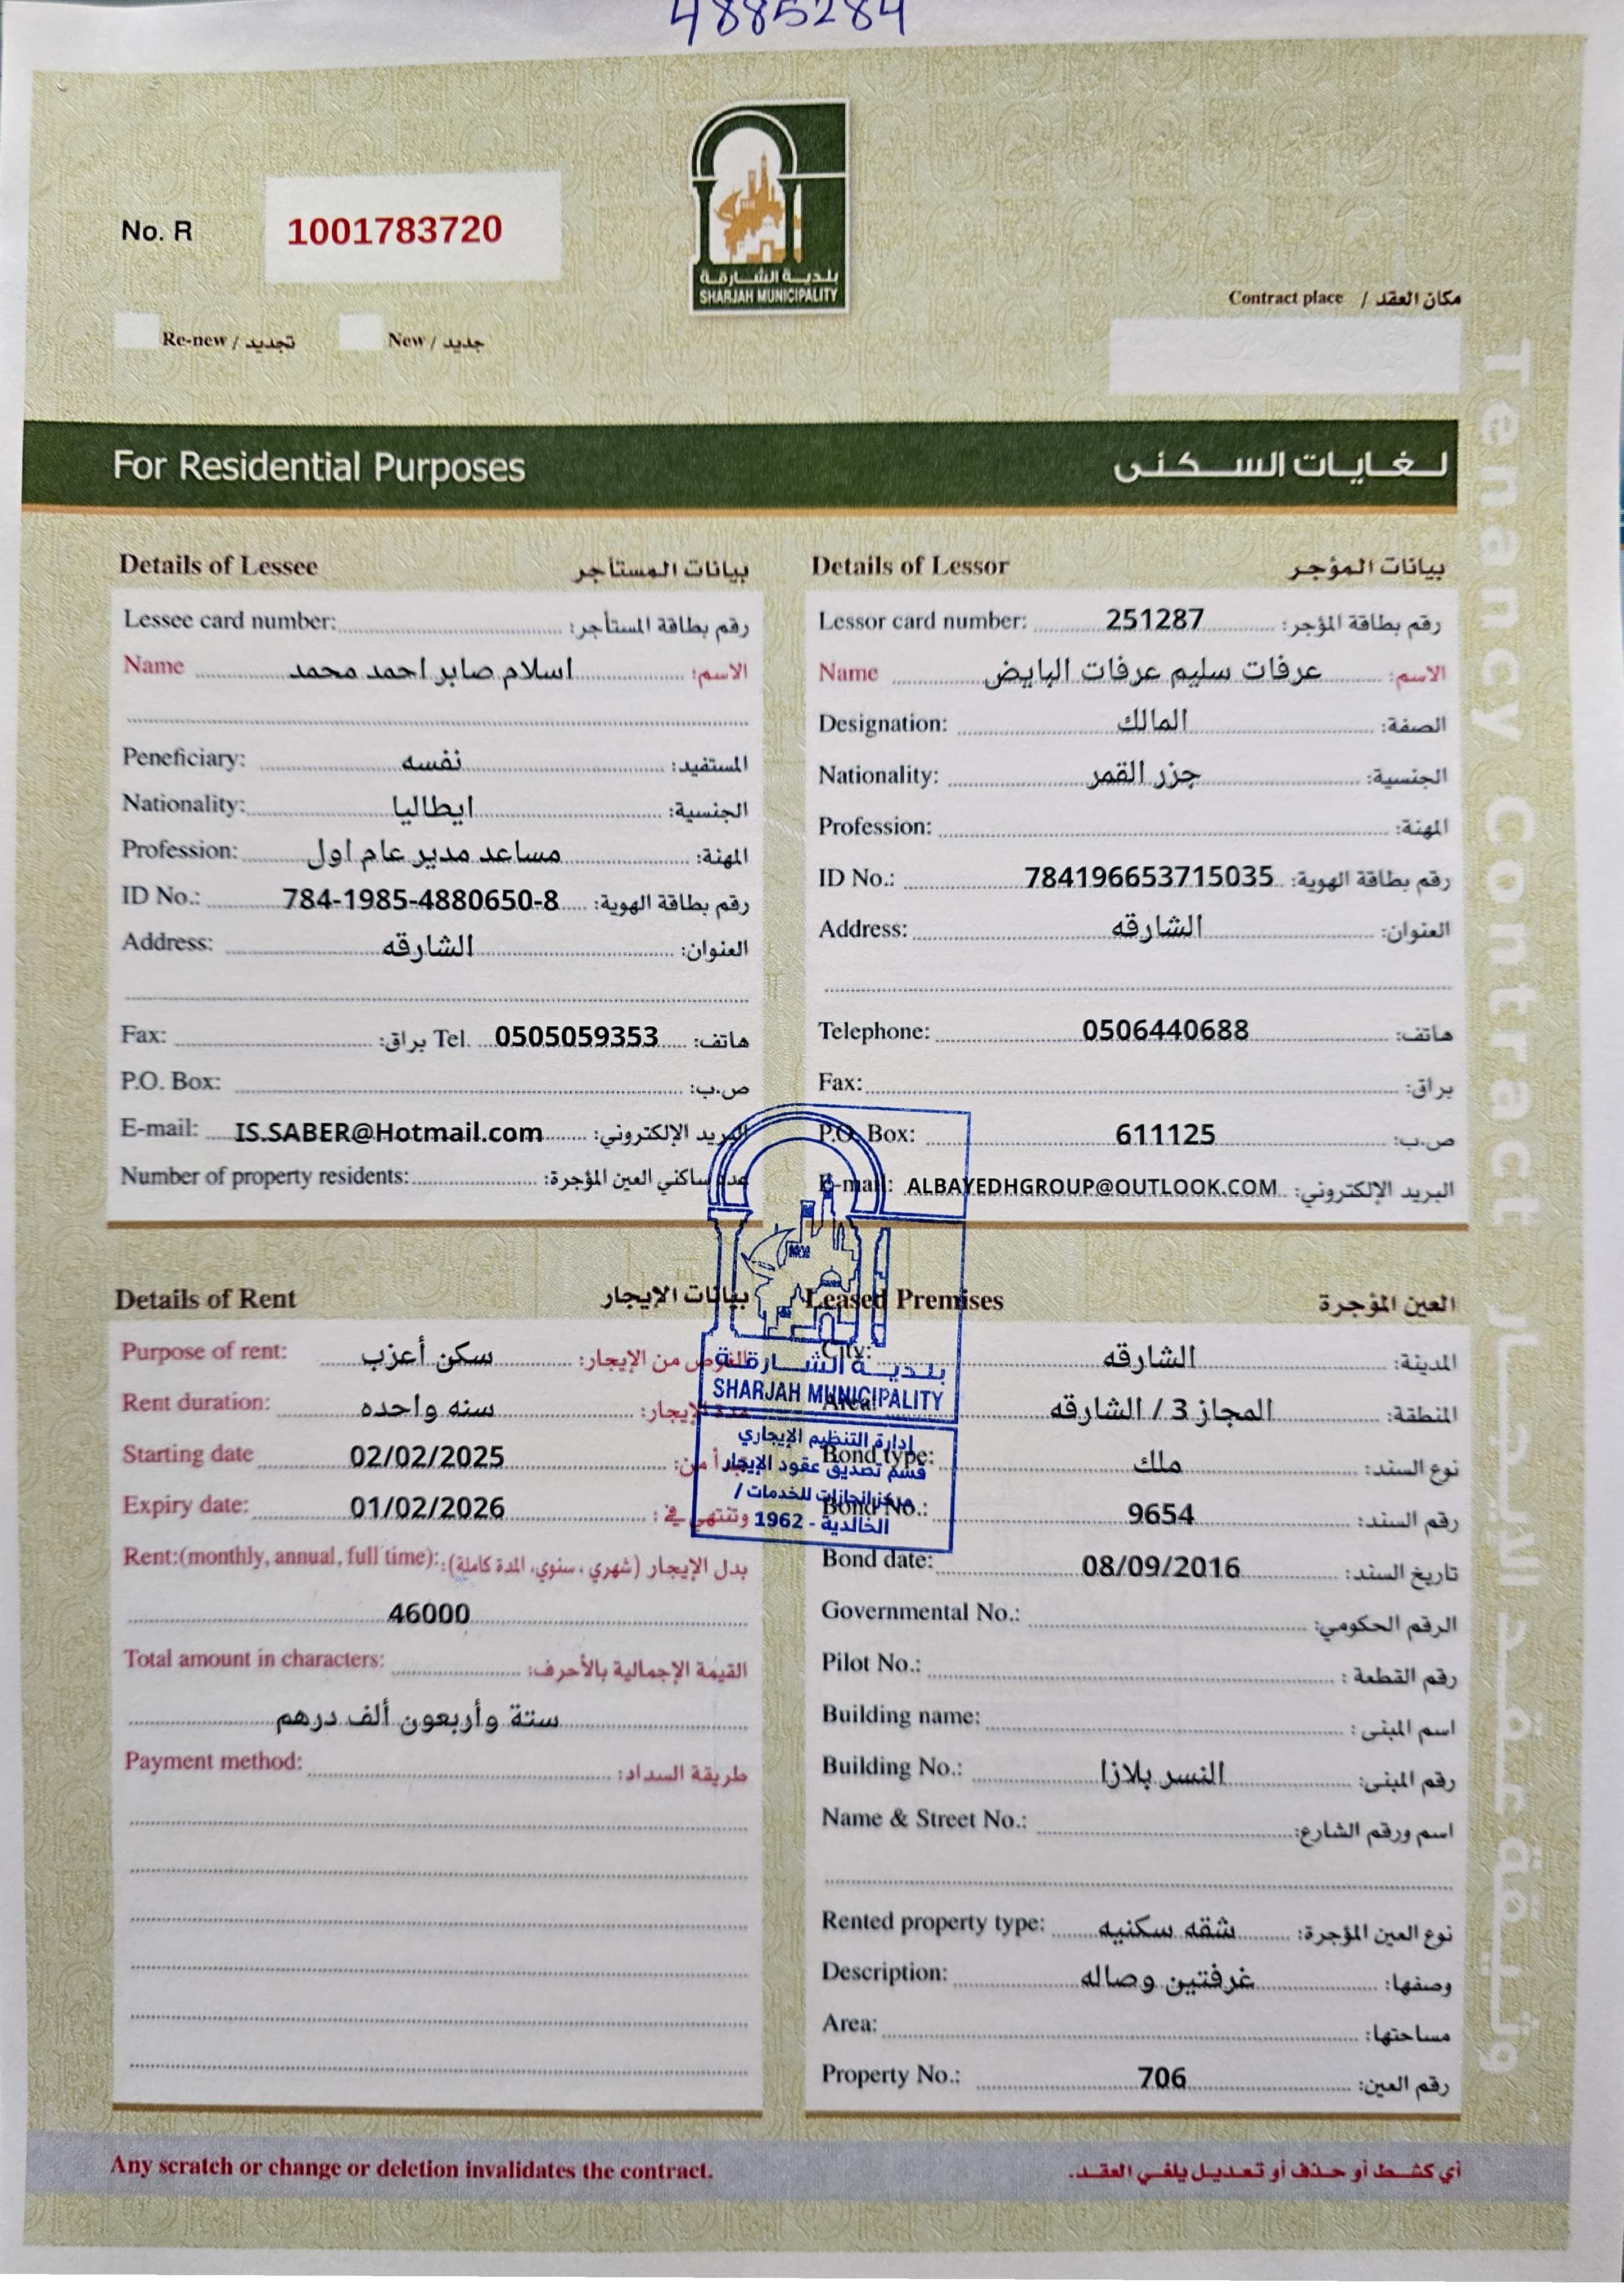 4885284
No. R 1001783720
بلدية الشارقة
SHARJAH MUNICIPALITY
Contract place / مكان العقد
Re-new / تجديد New / جديد
For Residential Purposes لغايات السكنى
Tenancy Contract
Details of Lessee بيانات المستأجر
Lessee card number: رقم بطاقة المستأجر:
Name اسلام صابر احمد محمد الاسم:
Peneficiary: نفسه المستفيد:
Nationality: ايطاليا الجنسية:
Profession: مساعد مدير عام اول المهنة:
ID No.: 784-1985-4880650-8 رقم بطاقة الهوية:
Address: الشارقه العنوان:
Fax: براق: Tel. 0505059353 هاتف:
P.O. Box: ص.ب:
E-mail: IS.SABER@Hotmail.com البريد الإلكتروني:
Number of property residents: عدد ساكني العين المؤجرة:
Details of Lessor بيانات المؤجر
Lessor card number: 251287 رقم بطاقة المؤجر:
Name عرفات سليم عرفات البايض الاسم:
Designation: المالك الصفة:
Nationality: جزر القمر الجنسية:
Profession: المهنة:
ID No.: 784196653715035 رقم بطاقة الهوية:
Address: الشارقه العنوان:
Telephone: 0506440688 هاتف:
Fax: براق:
P.O. Box: 611125 ص.ب:
E-mail: ALBAYEDHGROUP@OUTLOOK.COM البريد الإلكتروني:
Details of Rent بيانات الإيجار
Purpose of rent: سكن أعزب الغرض من الإيجار:
Rent duration: سنه واحده مدة الإيجار:
Starting date 02/02/2025 تبدأ من:
Expiry date: 01/02/2026 وتنتهي في:
Rent:(monthly, annual, full time): بدل الإيجار (شهري، سنوي، المدة كاملة):
46000
Total amount in characters: القيمة الإجمالية بالأحرف:
ستة وأربعون ألف درهم
Payment method: طريقة السداد:
بلدية الشارقة
SHARJAH MUNICIPALITY
إدارة التنظيم الإيجاري
قسم تصديق عقود الإيجار
مركز انجازات للخدمات /
الخالدية - 1962
Leased Premises العين المؤجرة
City: الشارقه المدينة:
Area: المجاز 3 / الشارقه المنطقة:
Bond type: ملك نوع السند:
Bond No.: 9654 رقم السند:
Bond date: 08/09/2016 تاريخ السند:
Governmental No.: الرقم الحكومي:
Pilot No.: رقم القطعة :
Building name: اسم المبنى :
Building No.: النسر بلازا رقم المبنى:
Name & Street No.: اسم ورقم الشارع:
Rented property type: شقه سكنيه نوع العين المؤجرة:
Description: غرفتين وصاله وصفها:
Area: مساحتها:
Property No.: 706 رقم العين:
Any scratch or change or deletion invalidates the contract. أي كشط أو حذف أو تعديل يلغي العقد.